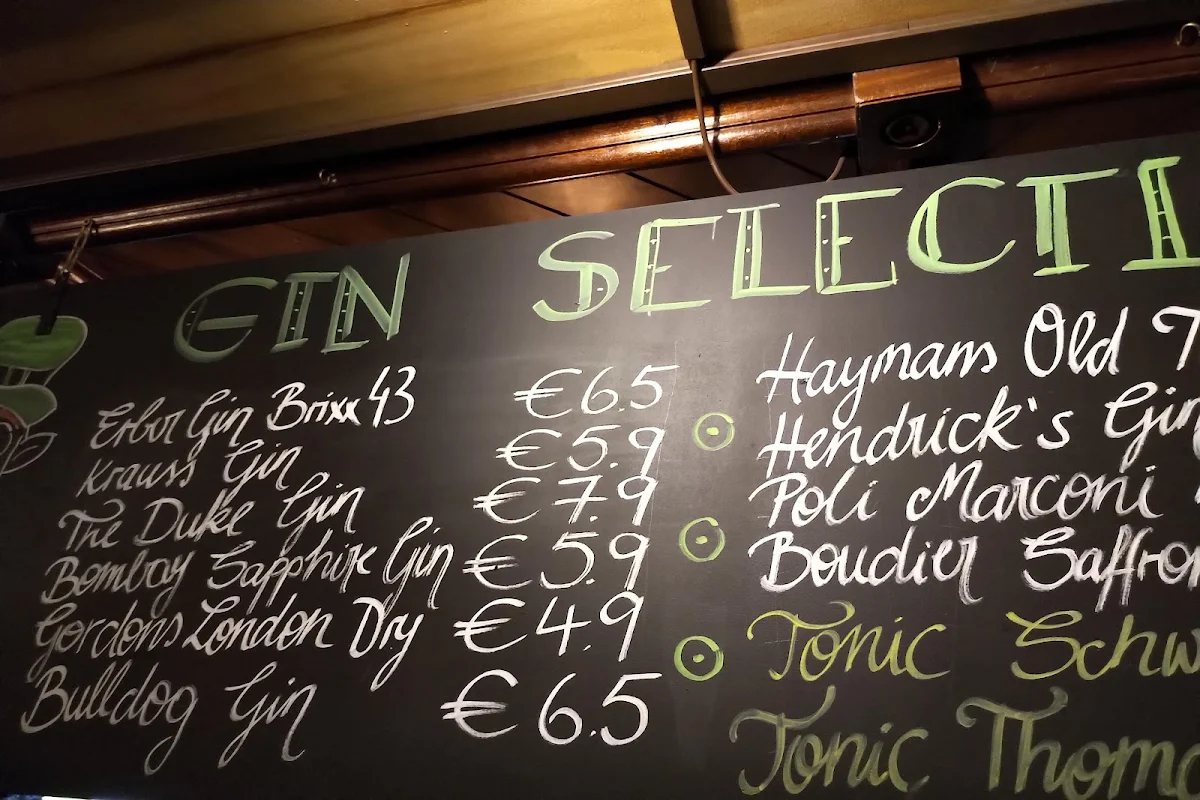 GIN SELECTI
Erbor Gin Brixx 43 €6.5
Krauss Gin €5.9
The Duke Gin €7.9
Bombay Sapphire Gin €5.9
Gordons London Dry €4.9
Bulldog Gin €6.5
Haymans Old T
Hendrick's Gin
Poli Marconi
Boudier Saffron
Tonic Schw
Tonic Thoma